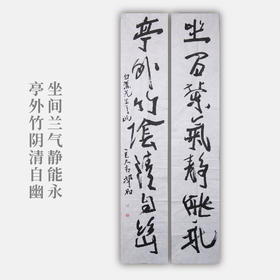 坐间蘭氣靜能永
亭外竹陰清自幽
坐间兰气静能永
亭外竹阴清自幽